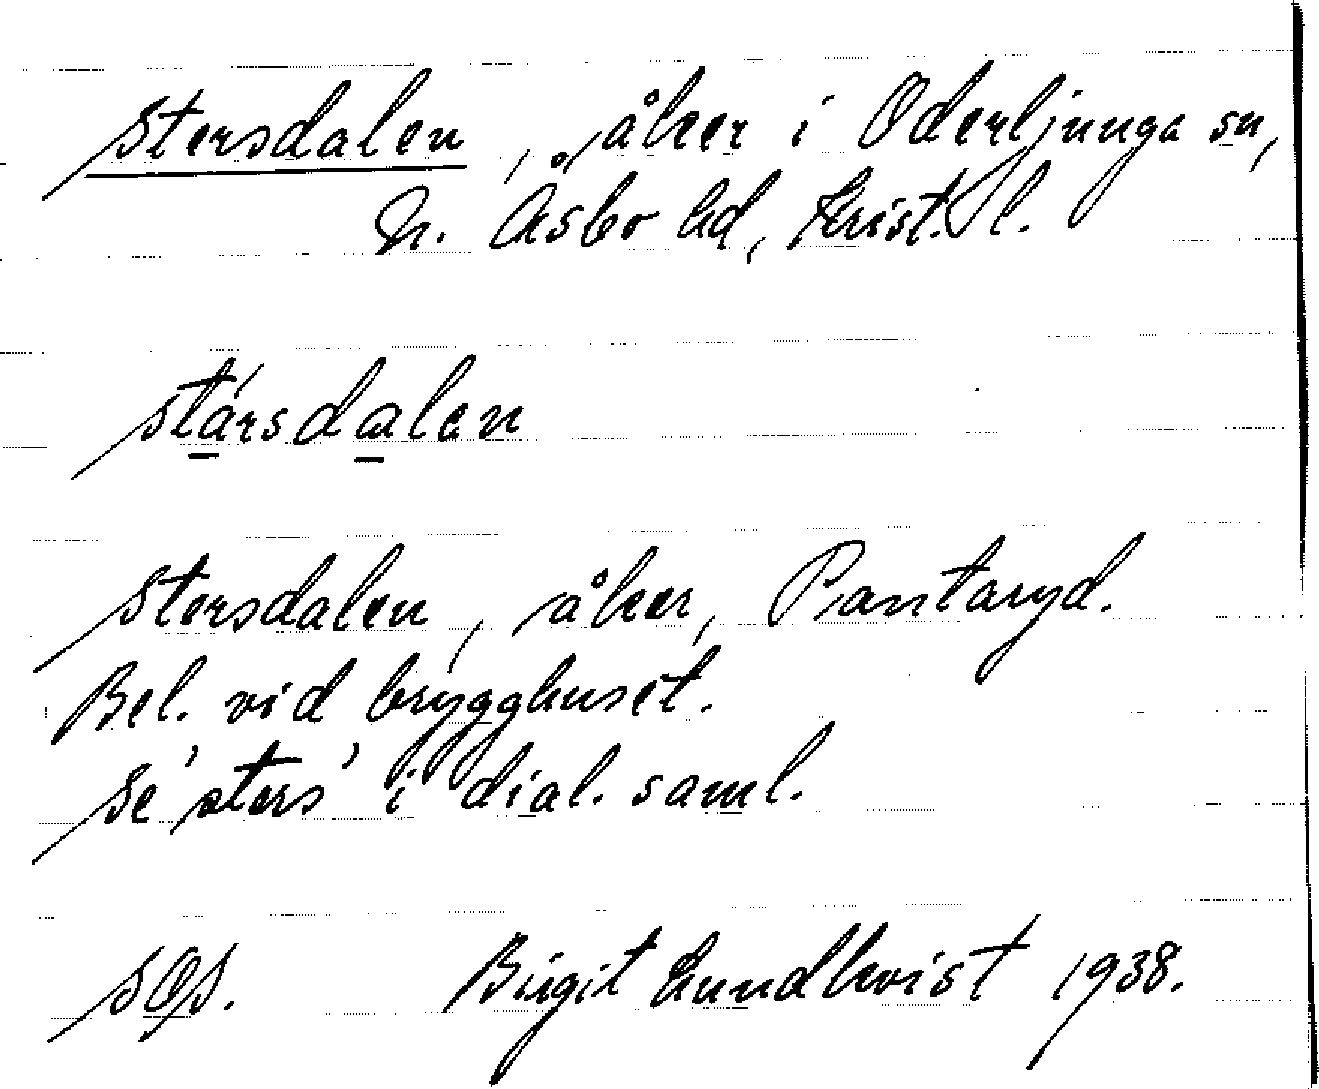 Stersdalen, åker i Oderljunga sn,
N. Åsbo hd, Krist. l.
stársdalen
Stersdalen, åker, Pantaryd.
Bel. vid brygghuset.
Se 'sters' i dial. saml.
SOS. Birgit Lundkvist 1938.